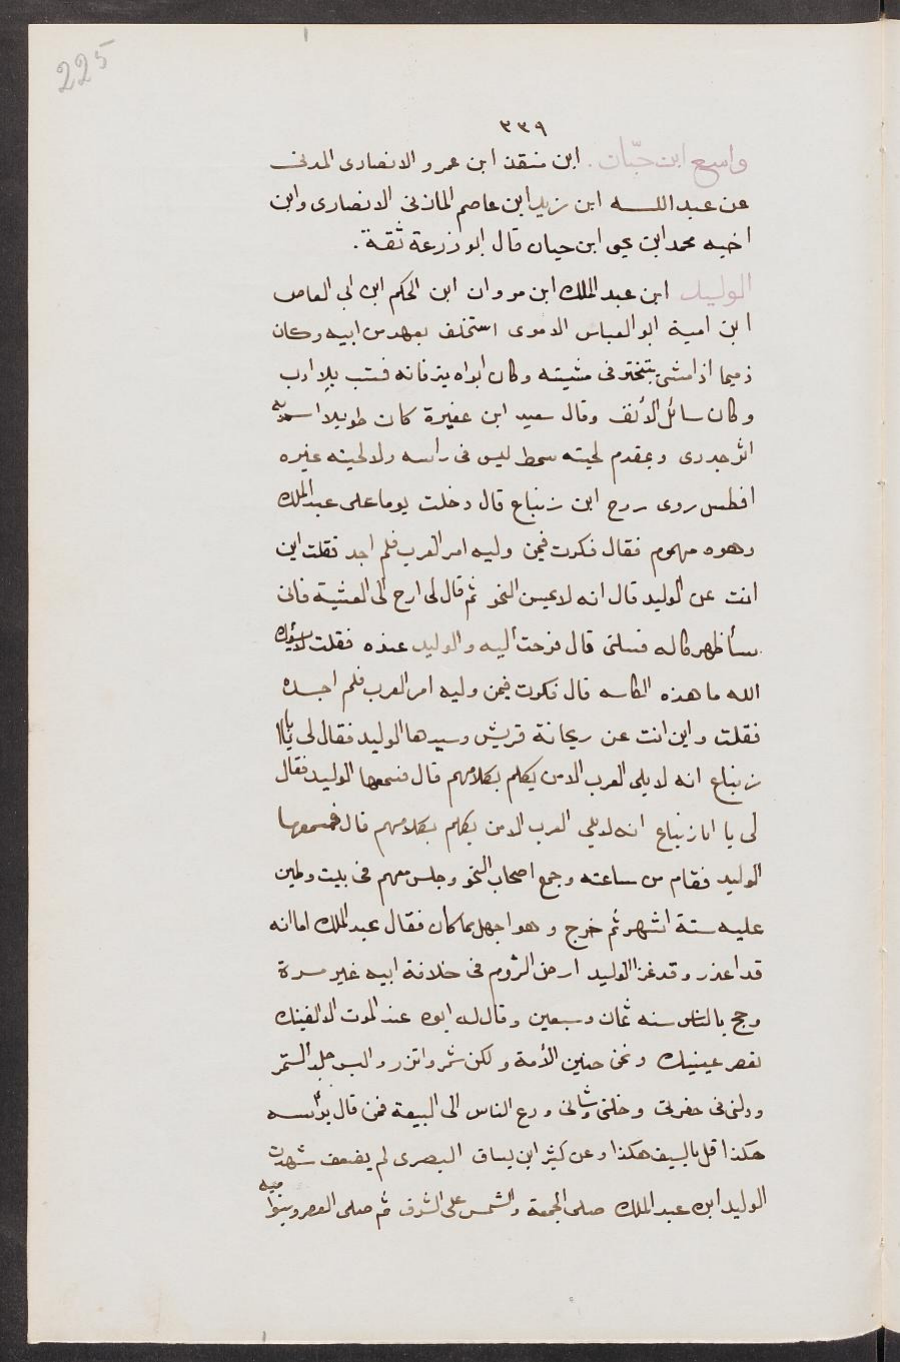 225
٣٣٩
واسع ابن حبّان . ابن منقذ ابن عمرو الانصارى المدنى
عن عبد اللـــه ابن زيد ابن عاصم المازنى الانصارى وابن
اخيه محمد ابن يحيى ابن حيان قال ابو زرعة ثقة .
الوليد ابن عبد الملك ابن مروان ابن الحكم ابن ابى العاص
ابن امية ابو العباس الاموى استخلف بعهد من ابيه وكان
ذميما اذا مشى يتبختر فى مشيته وكان ابواه يترفانه فشب بلا ادب
وكان سائل الأنف وقال سعيد ابن عفيرة كان طويلا اسمر به
اثر جدرى وبمقدم لحيته سمط ليس فى راسه ولا لحيته غيره
افطس روى روح ابن زنباع قال دخلت يوما على عبد الملك
وهوه مهموم فقال فكرت فيمن وليه امر العرب فلم اجد فقلت اين
انت عن الوليد قال انه لا يحسن النحو ثم قال لى ارح الى العشية فانى
سأظهر كاله فسلنى قال فرحت أليه والوليد عنده فقلت لا يسؤك
الله ما هذه الكاسه قال فكرت فيمن وليه امر العرب فلم اجده
فقلت واين انت عن ريحانة قريش وسيدها الوليد فقال لى يا ابا
زنباع انه لا يلى العرب الا من يكلم بكلامهم قال فسمعها الوليد فقال
لى يا ابا زنباع انه لا يلي العرب الا من يكلم بكلامهم قال فسمعها
الوليد فقام من ساعته وجمع اصحاب النحو وجلس معهم فى بيت وطين
عليه ستة اشهر ثم خرج وهو اجهل مما كان فقال عبد الملك اما انه
قد اعذر وقد غزا الوليد ارض الروم فى خلافة ابيه غير مـرة
وحج بالناس سنه ثمان وسبعين وقال له ابوه عند الموت لا الفينك
تعصر عينيك وتحن حنين الأمة ولكن شمر واتزر والبس جلد النمر
ودلنى فى حفرتى وخلنى وشانى ودع الناس الى البيعة فمن قال برأسه
هكذا قل بالسيف هكذا وعن كثير ابن يساف البصرى لم يضعف شهدت
الوليد ابن عبد الملك صلى الجمعة والشمس على الشرف ثم صلى العصر وبنوا ميه